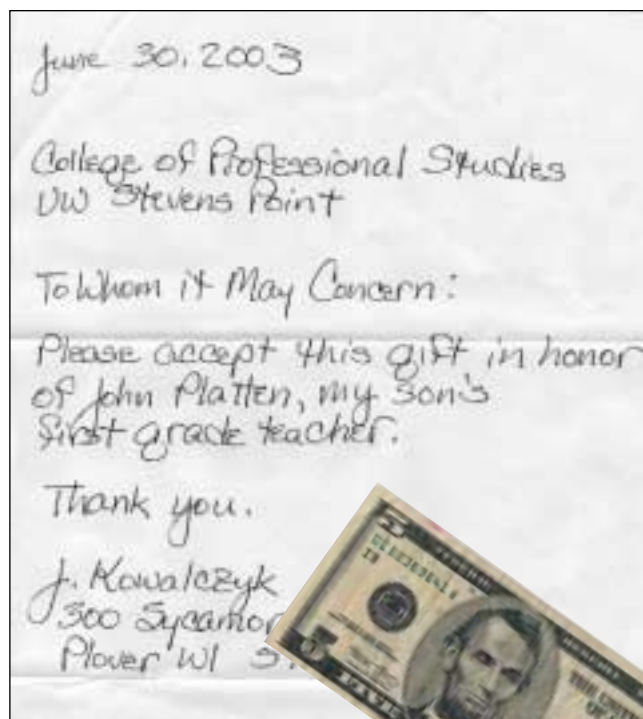 June 30, 2003
College of Professional Studies
UW Stevens Point
To Whom it May Concern:
Please accept this gift in honor
of John Platten, my son's
first grade teacher.
Thank you.
J. Kowalczyk
300 Sycamor
Plover WI